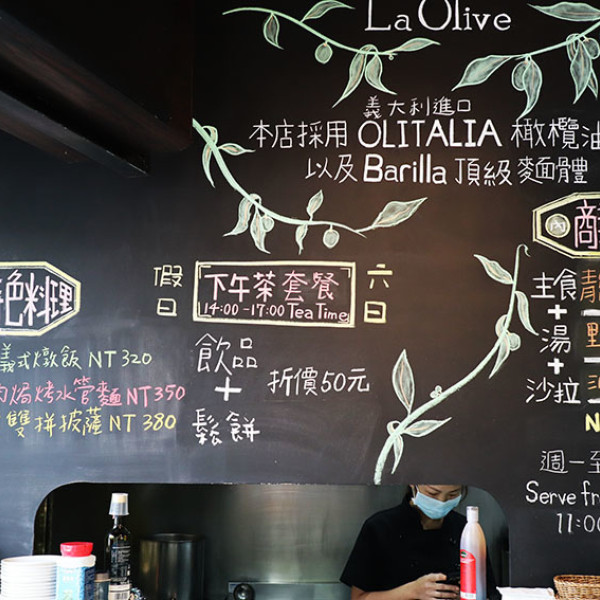 La Olive
義大利進口
本店採用 OLITALIA 橄欖油
以及 Barilla 頂級麵體
色料理
義式燉飯 NT 320
肉焗烤水管麵 NT 350
雙拼披薩 NT 380
假日
下午茶套餐
14:00-17:00 Tea Time
六日
飲品
+
鬆餅
折價50元
主食
+
湯
+
沙拉
週一至
Serve fr
11:00